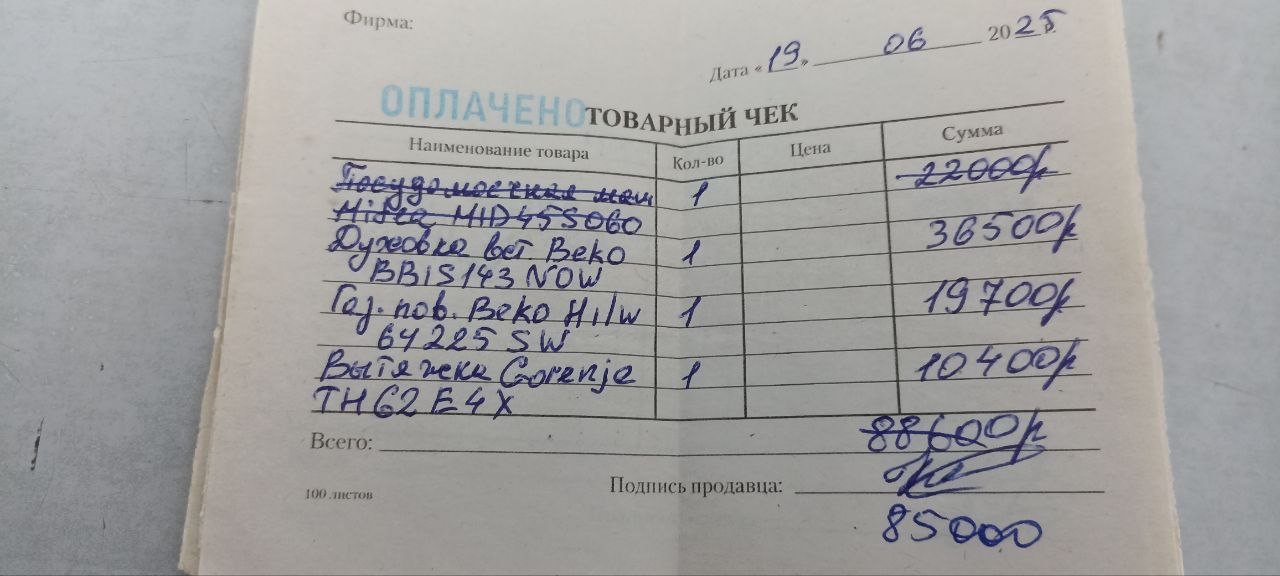 Фирма:
Дата «19» 06 2025г.
ОПЛАЧЕНО
ТОВАРНЫЙ ЧЕК
Наименование товара Кол-во Цена Сумма
Посудомоечная маш 1 22000р
Midea MID45S060
Духовка вст Beko 1 36500р
BBIS143 NOW
Газ. пов. Beko Hilw 1 19700р
64225 SW
Вытяжка Gorenje 1 10400р
TH62E4X
Всего: 88600р
100 листов
Подпись продавца:
85000